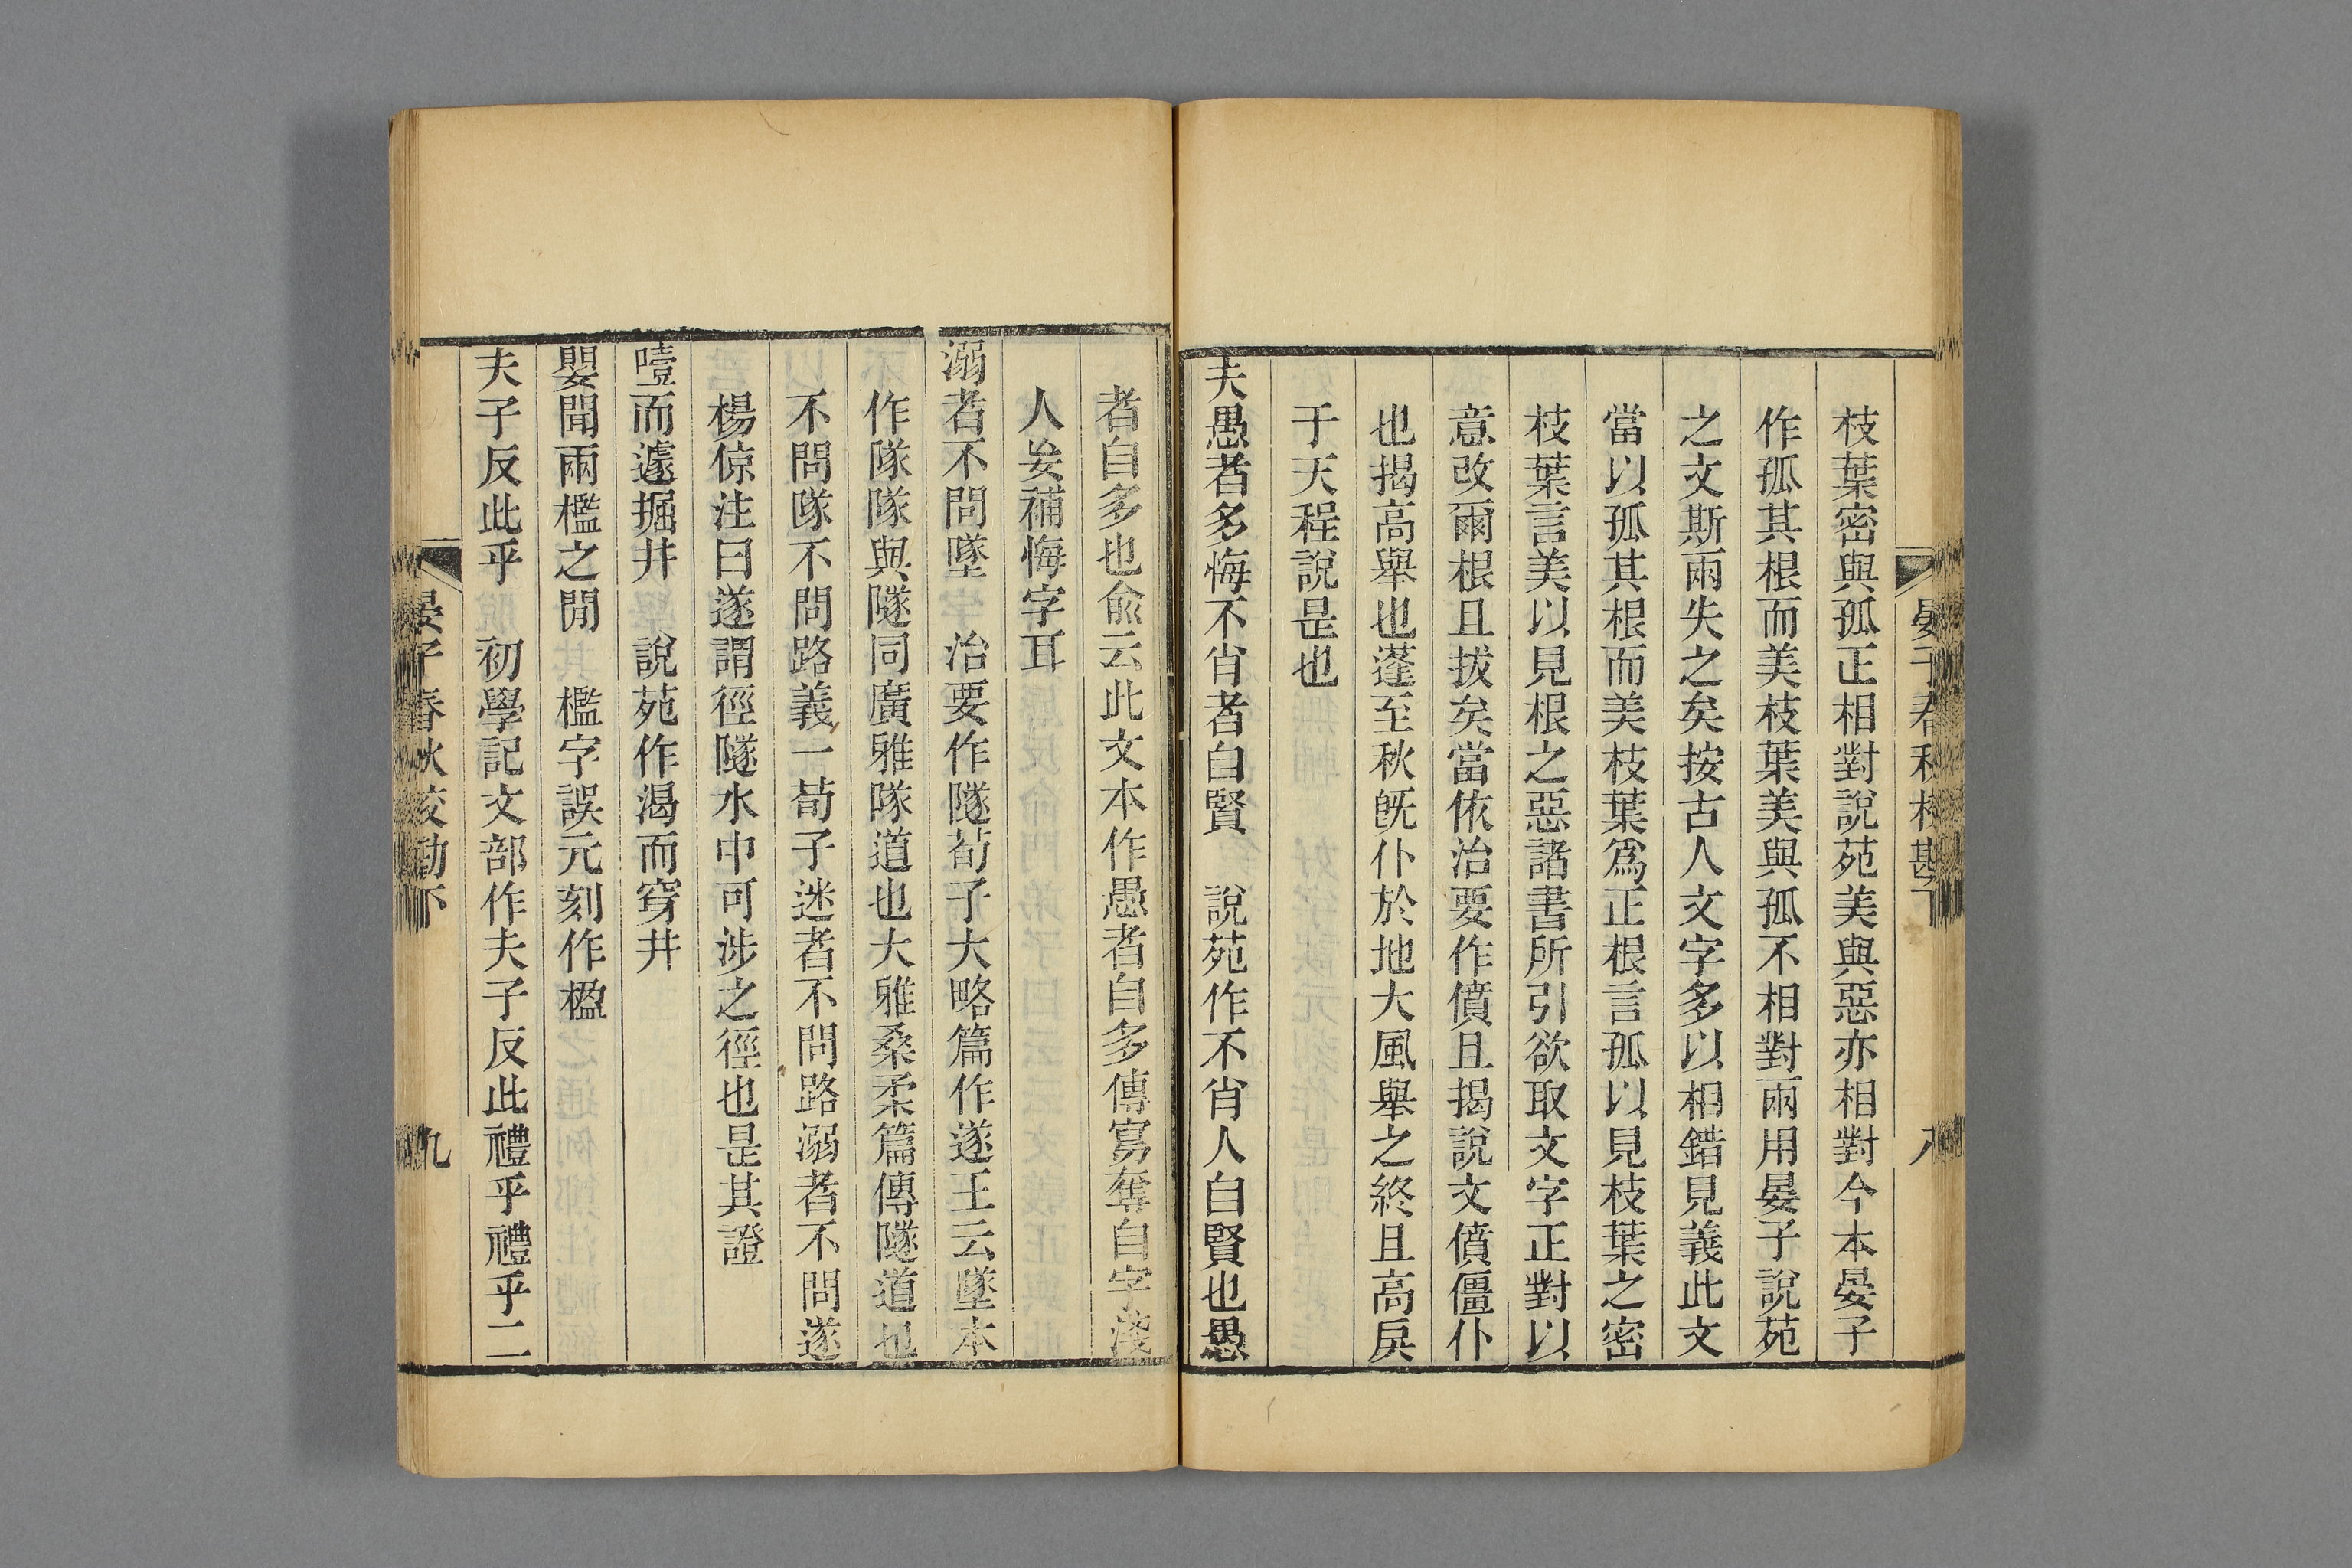 晏子春秋校勘下
八
枝葉密與孤正相對說苑美與惡亦相對今本晏子
作孤其根而美枝葉美與孤不相對兩用晏子說苑
之文斯兩失之矣按古人文字多以相錯見義此文
當以孤其根而美枝葉爲正根言孤以見枝葉之密
枝葉言美以見根之惡諸書所引欲取文字正對以
意改爾根且拔矣當依治要作僨且揭說文僨僵仆
也揭高舉也蓬至秋旣仆於地大風舉之終且高戾
于天程說是也
夫愚者多悔不肖者自賢　說苑作不肖人自賢也愚
者自多也俞云此文本作愚者自多傳寫奪自字淺
人妄補悔字耳
溺者不問墜　治要作隧荀子大略篇作遂王云墜本
作隊隊與隧同廣雅隊道也大雅桑柔篇傳隧道也
不問隊不問路義一荀子迷者不問路溺者不問遂
楊倞注曰遂謂徑隧水中可涉之徑也是其證
噎而遽掘井　說苑作渴而穿井
嬰聞兩檻之閒　檻字誤元刻作楹
夫子反此乎　初學記文部作夫子反此禮乎禮乎二
晏子春秋校勘下
九